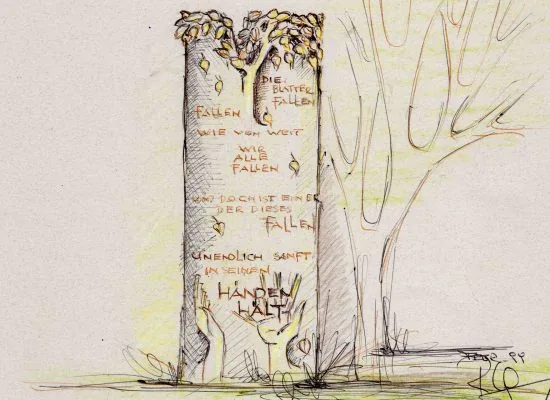 DIE
BLÄTTER
FALLEN
FALLEN
WIE VON WEIT
WIR
ALLE
FALLEN
UND DOCH IST EINER
DER DIESES
FALLEN
UNENDLICH SANFT
IN SEINEN
HÄNDEN
HÄLT